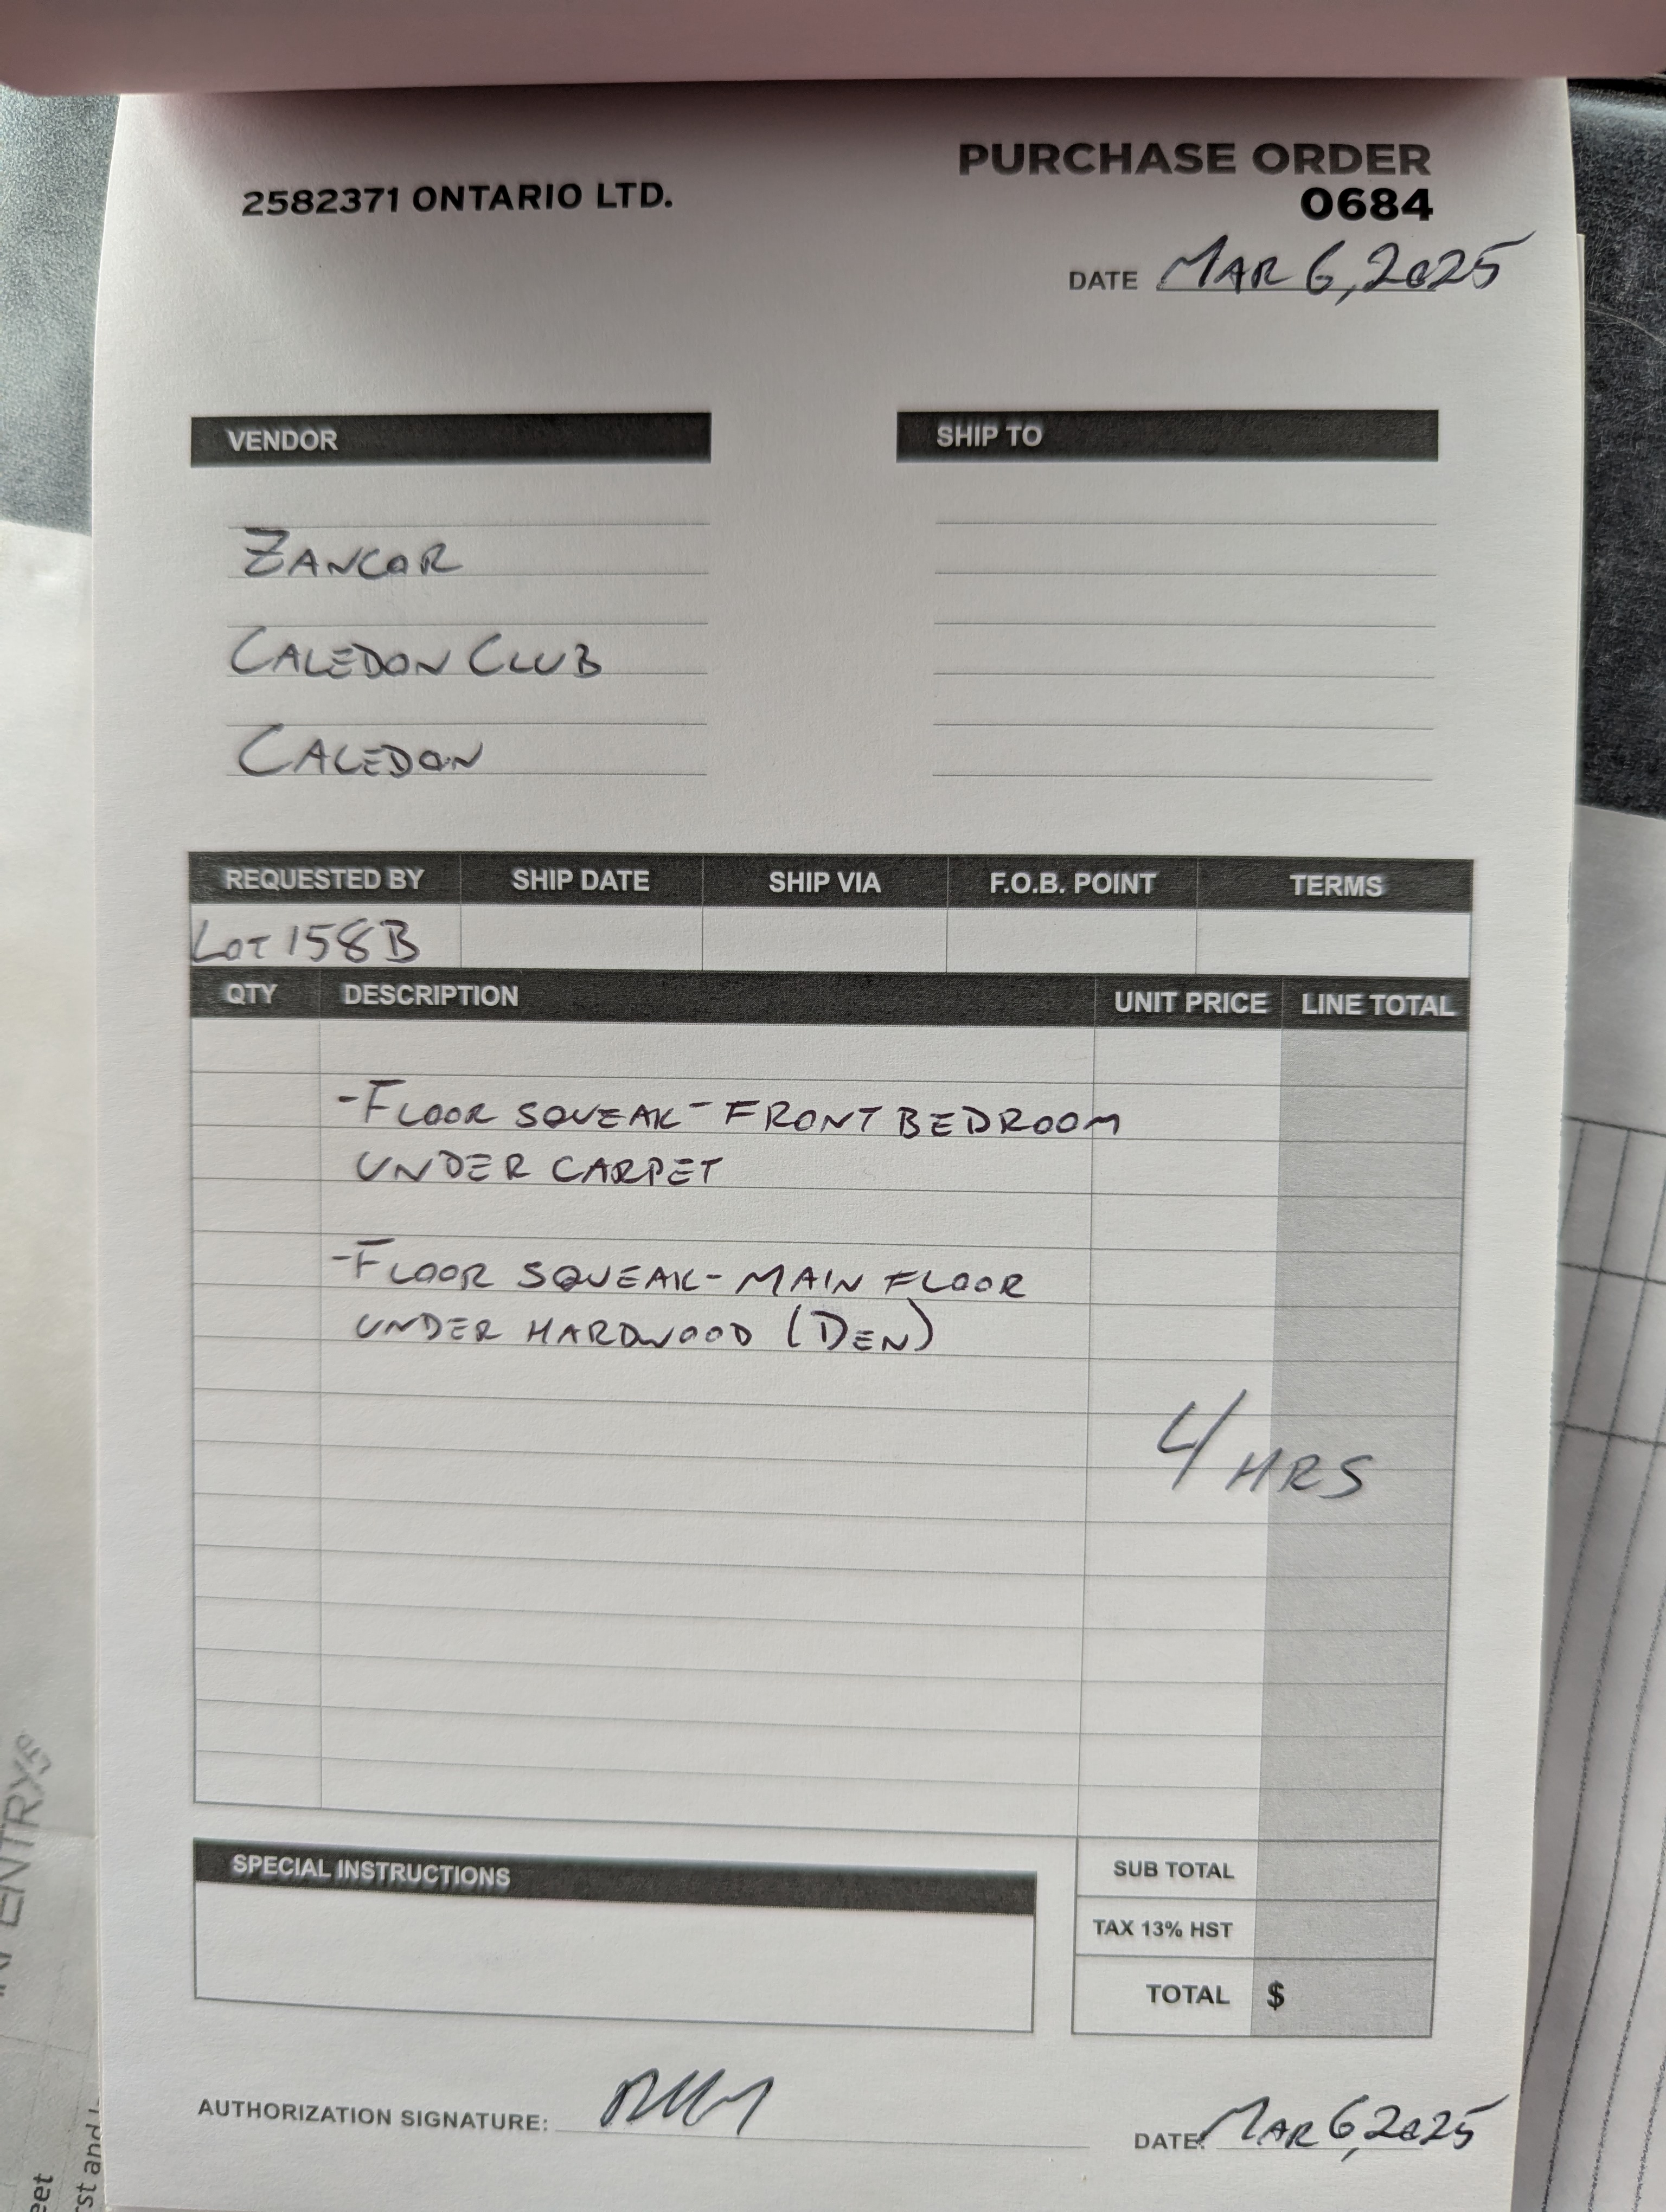 PURCHASE ORDER
2582371 ONTARIO LTD.
0684
DATE MAR 6, 2025
VENDOR SHIP TO
ZANCOR
CALEDON CLUB
CALEDON
REQUESTED BY SHIP DATE SHIP VIA F.O.B. POINT TERMS
LOT 158B
QTY DESCRIPTION UNIT PRICE LINE TOTAL
-FLOOR SQUEAK - FRONT BEDROOM
UNDER CARPET
-FLOOR SQUEAK - MAIN FLOOR
UNDER HARDWOOD (DEN)
4/HRS
SPECIAL INSTRUCTIONS
SUB TOTAL
TAX 13% HST
TOTAL $
AUTHORIZATION SIGNATURE:
DATE: MAR 6, 2025